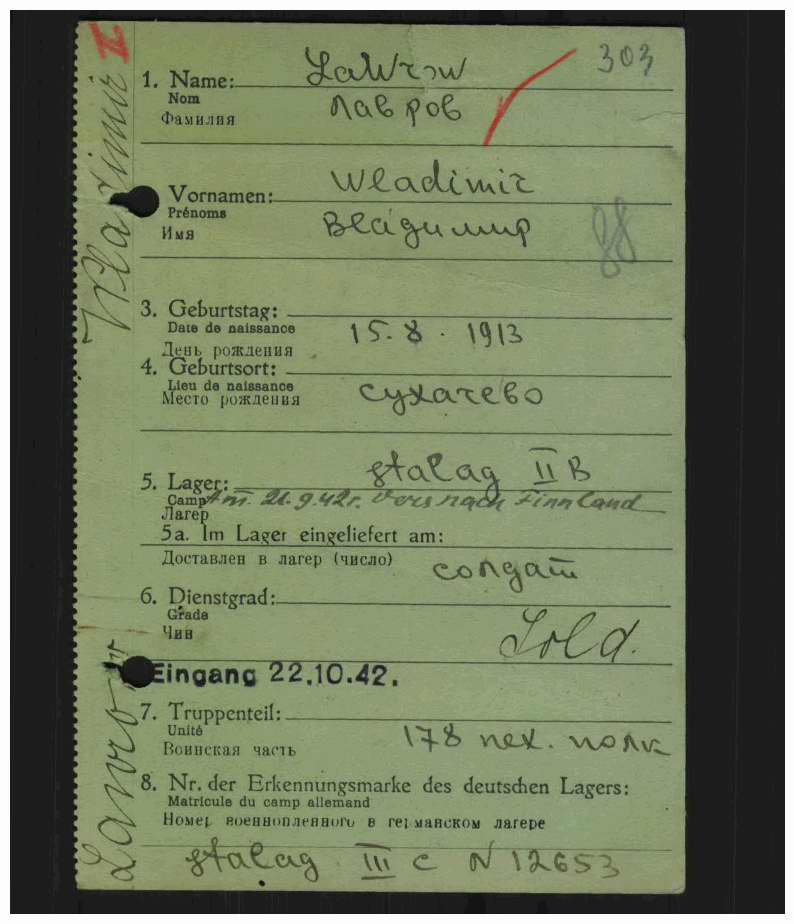 303
II
1. Name: Lawrow
Nom
Фамилия
Лавров
Vornamen: Wladimir
Prénoms
Имя
Владимир
3. Geburtstag:
Date de naissance
День рождения
15. 8. 1913
4. Geburtsort:
Lieu de naissance
Место рождения
Сухачево
5. Lager: Stalag II B
Camp
Am 21.9.42 r. vers nach Finnland
Лагерь
5a. Im Lager eingeliefert am:
Доставлен в лагерь (число)
солдат
6. Dienstgrad:
Grade
Чин
Sold.
Eingang 22.10.42.
7. Truppenteil:
Unité
Воинская часть
178 пех. полк
8. Nr. der Erkennungsmarke des deutschen Lagers:
Matricule du camp allemand
Номер военнопленного в германском лагере
Stalag III C N 12653
Lawrow
Wladimir